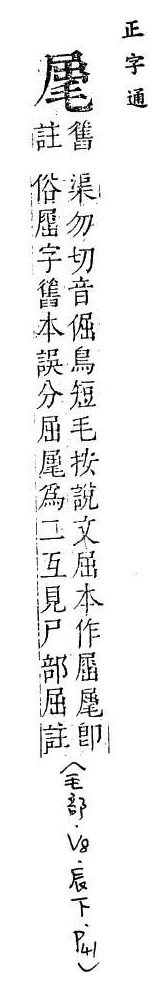 正字通
舊註
渠勿切音倔鳥短毛按說文屈本作即
俗屈字舊本誤分屈為二互見尸部屈註
(毛部.V8.辰下.P41)